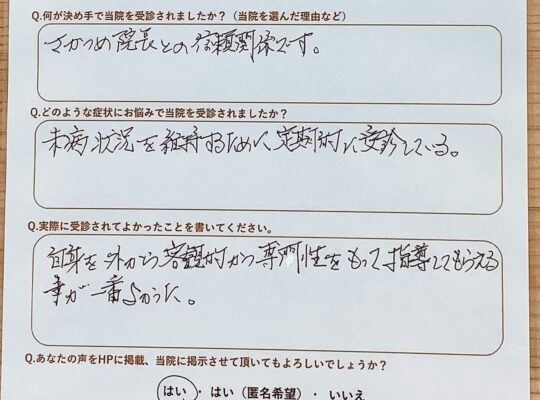 Q.何が決め手で当院を受診されましたか？（当院を選んだ理由など）
さかつめ院長との信頼関係です。
Q.どのような症状にお悩みで当院を受診されましたか？
未病状況を維持するために、定期的に受診している。
Q.実際に受診されてよかったことを書いてください。
自身を外から客観的かつ専門性をもって指導してもらえる
事が一番よかった。
Q.あなたの声をHPに掲載、当院に掲示させて頂いてもよろしいでしょうか？
はい ・ はい（匿名希望）・ いいえ